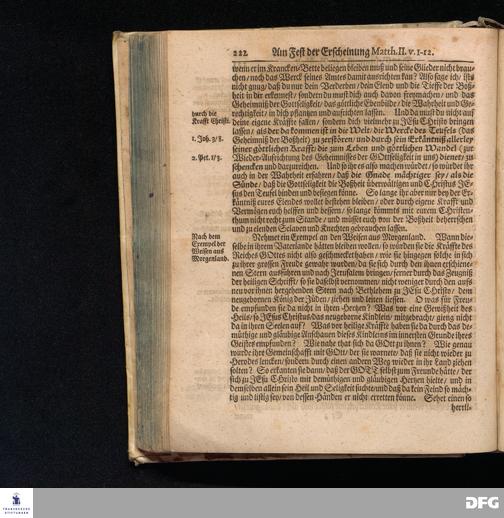 222 Am Fest der Erscheinung Matth. II. v. 1-12.
wenn er im Krancken-Bette beliegen bleiben muß und seine Glieder nicht brau-
chen/ noch das Werck seines Amtes damit ausrichten kan? Also sage ich/ ists
nicht gnug/ daß du nur dein Verderben/ dein Elend und die Tieffe der Boß-
heit in dir erkennest/ sondern du must dich auch davon freymachen/ und das
Geheimniß der Gottseligkeit/ das göttliche Ebenbilde/ die Wahrheit und Ge-
durch die
Krafft Christi.
rechtigkeit/ in dich pflantzen und aufrichten lassen. Und da must du nicht auf
deine eigene Kräffte fallen/ sondern dich vielmehr zu JEsu Christo bringen
lassen/ als der da kommen ist in die Welt/ die Wercke des Teufels (das
1. Joh. 3/8.
Geheimniß der Boßheit) zu zerstören/ und durch sein Erkäntniß allerley
seiner göttlichen Krafft/ die zum Leben und göttlichen Wandel (zur
2. Pet. 1/3.
Wieder-Aufrichtung des Geheimnisses der GOttseligkeit in uns) dienet/ zu
schencken und darzureichen. Und so ihrs also machen würdet/ so würdet ihr
auch in der Wahrheit erfahren/ daß die Gnade mächtiger sey/ als die
Sünde/ daß die Gottseligkeit die Boßheit überwältigen und Christus JE-
sus den Teufel binden und besiegen könne. So lange ihr aber nur bey der Er-
käntniß eures Elendes wollet bestehen bleiben/ oder durch eigene Krafft und
Vermögen euch helffen und bessern/ so lange kömmts mit eurem Christen-
thum nicht recht zum Stande/ und müsset euch von der Boßheit beherrschen
und zu elenden Sclaven und Knechten gebrauchen lassen.
Nach dem
Exempel der
Weisen aus
Morgenland.
Nehmet ein Exempel an den Weisen aus Morgenland. Wann die-
selbe in ihrem Vaterlande hätten bleiben wollen/ so würden sie die Kräffte des
Reiches GOttes nicht also geschmecket haben/ wie sie hingegen solche in sich
zu ihrer grossen Freude gewahr wurden/ da sie sich durch den ihnen erschiene-
nen Stern ausführen und nach Jerusalem bringen; ferner durch das Zeugniß
der heiligen Schrifft/ so sie daselbst vernommen; nicht weniger durch den aufs
neu vor ihnen hergehenden Stern nach Bethlehem zu JEsu Christo/ dem
neugebornen König der Jüden/ ziehen und leiten liessen. O was für Freu-
de empfunden sie da nicht in ihren Hertzen? Was vor eine Gewißheit des
Heils/ so JEsus Christus/ das neugeborne Kindlein/ mitgebracht/ gieng nicht
da in ihren Seelen auf? Was vor heilige Kräffte haben sie da durch das de-
müthige und gläubige Anschauen dieses Kindleins im innersten Grunde ihres
Geistes empfunden? Wie nahe that sich da GOtt zu ihnen? Wie genau
wurde ihre Gemeinschafft mit GOtt/ der sie warnete/ daß sie nicht wieder zu
Herodes lencken/ sondern durch einen andern Weg wieder in ihr Land ziehen
solten? So erkanten sie dann/ daß der GOTT selbst zum Freunde hätte/ der
sich zu JEsu Christo mit demüthigen und gläubigen Hertzen hielte/ und in
demselben allein sein Heil und Seligkeit suchte/ und daß da kein Feind so mäch-
tig und listig sey/ von dessen Händen er nicht erretten könne. Sehet einen so
herrli-
FRANCKESCHE
STIFTUNGEN
DFG